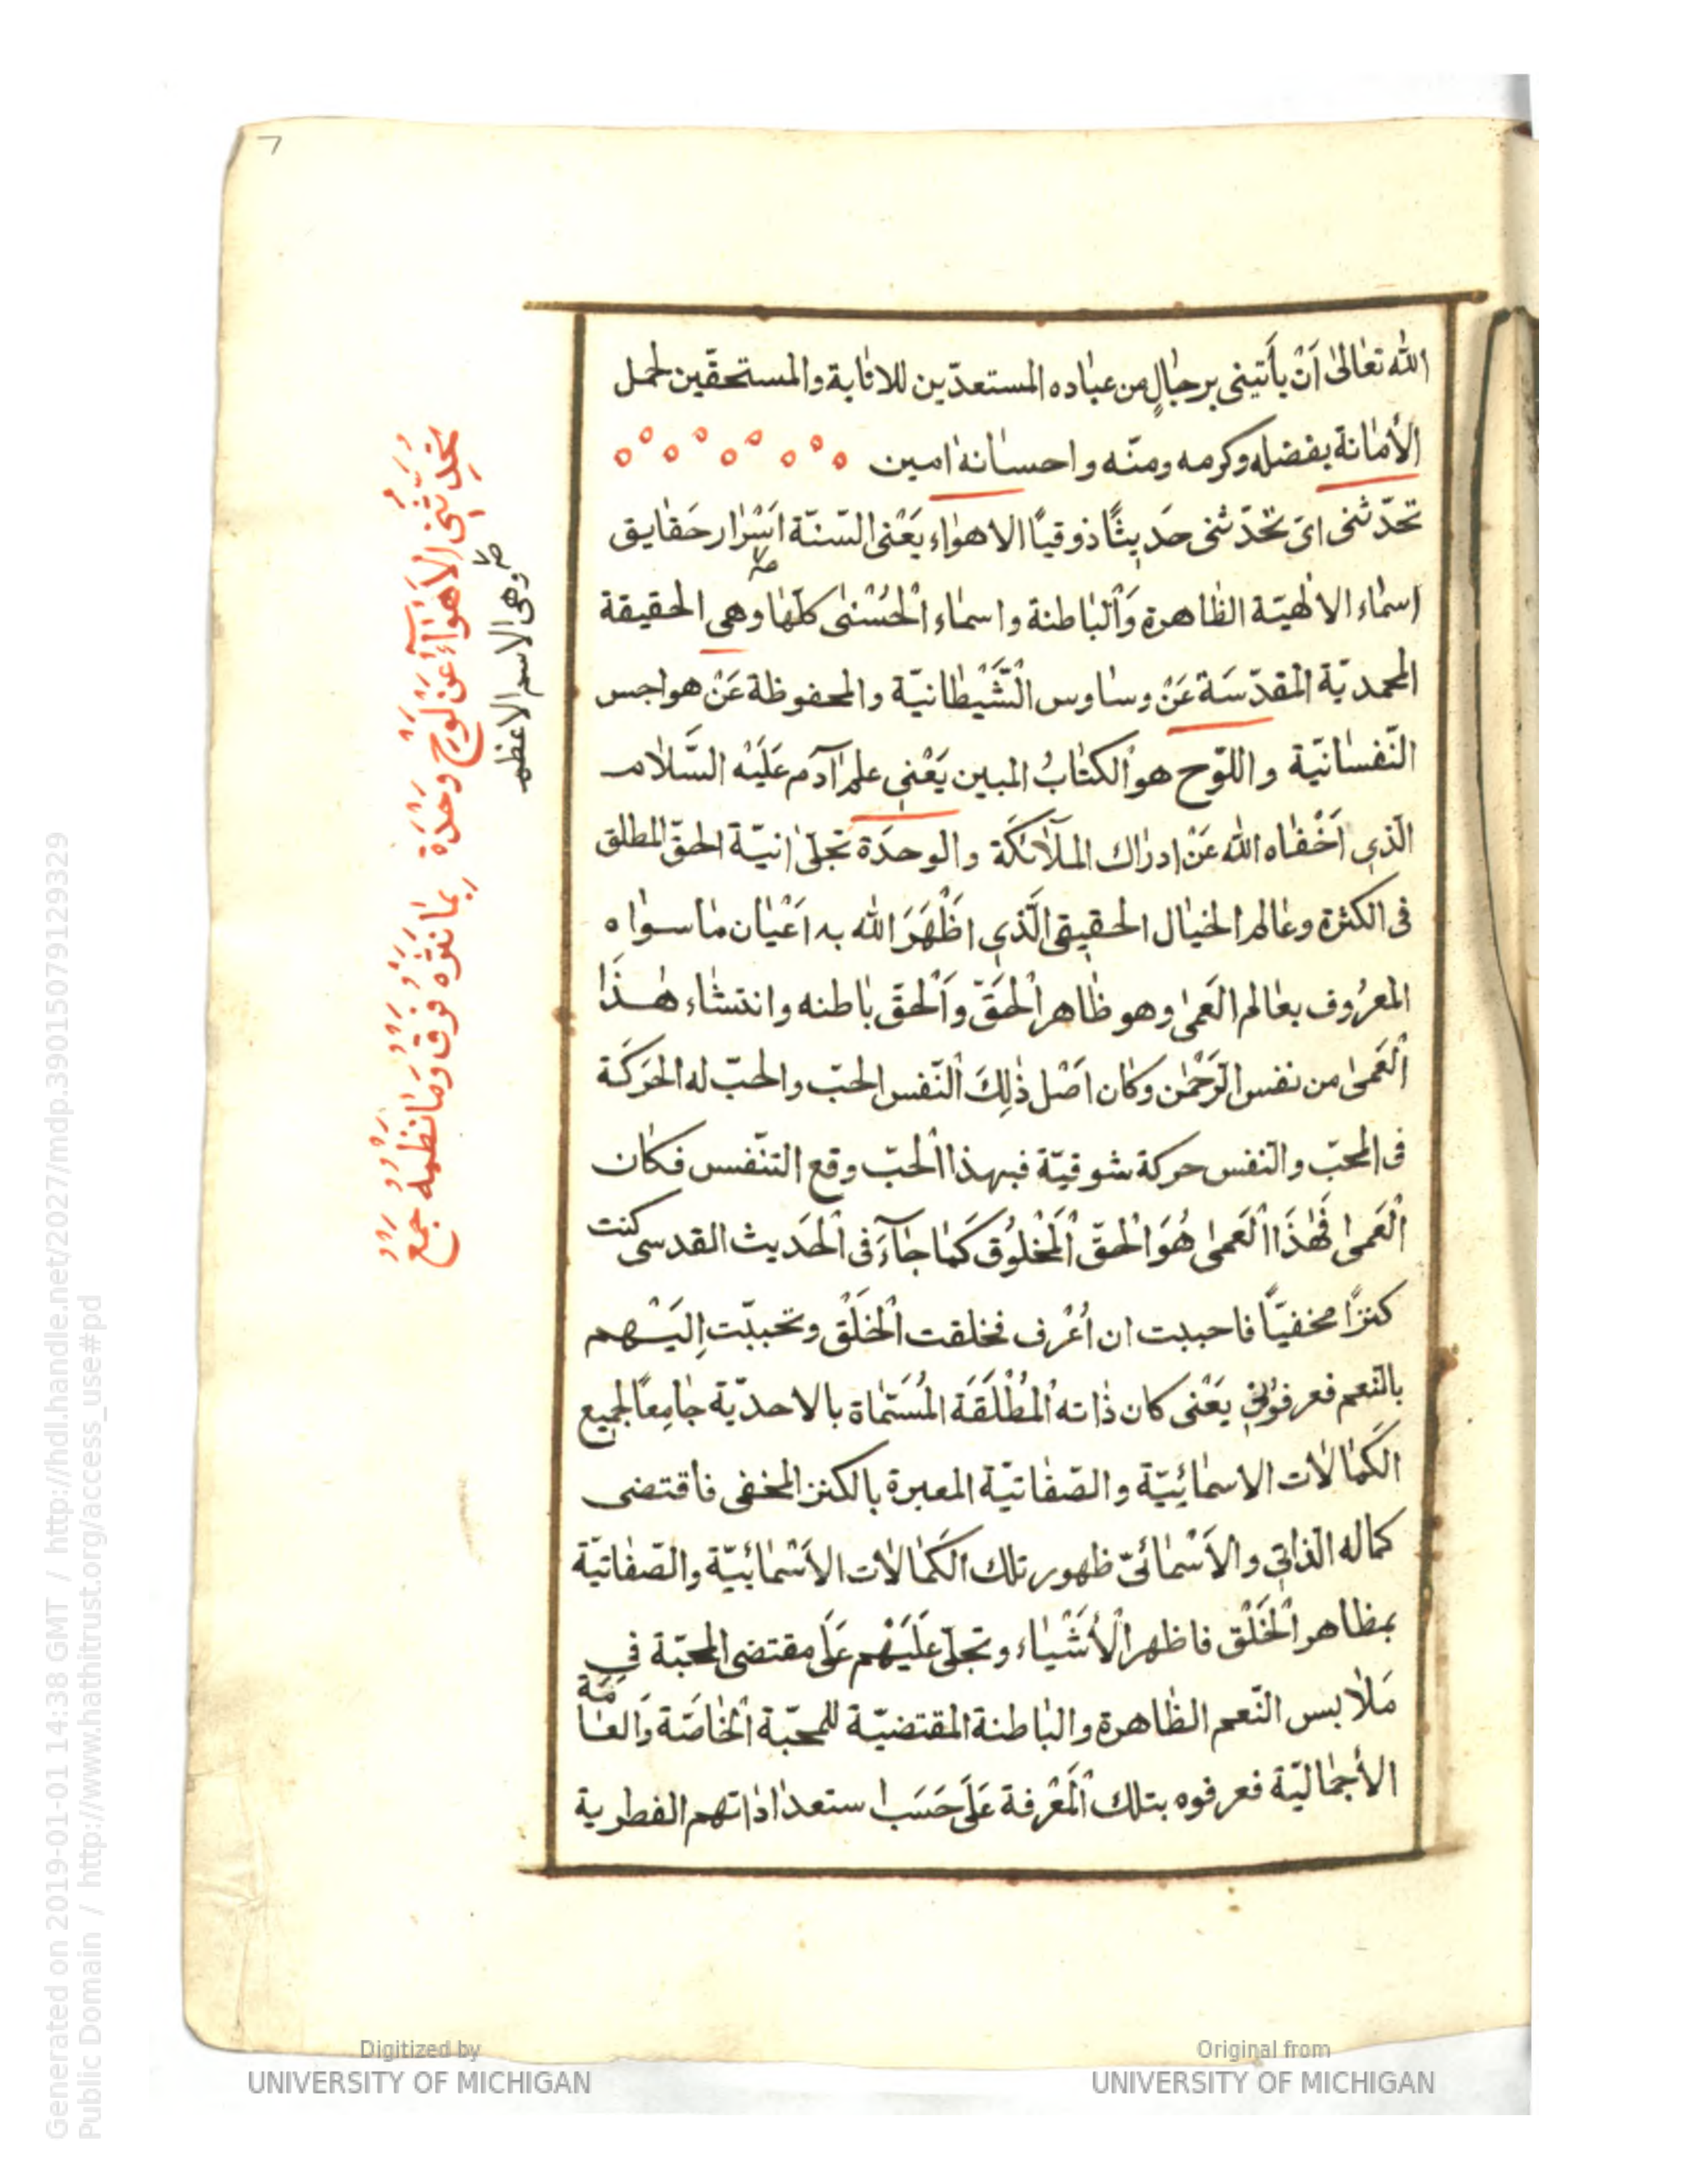 الله تعالى اَنْ يأتينى برجالٍ من عباده المستعدّين للاثابة والمستحقّين لحمل
الأمانة بفضله وكرمه ومنّه واحسانه امين
تحدّثنى اىْ تحْدّثنى حَديثًا ذوقيًا الاهواء يَعْنى السّنّة اَسْرار حَقايق
اسماء الالهيّة الظّاهرة وَالْباطنة واسماء الْحُسْنى كلّها وهى الحقيقة
المحمديّة الْمقدّسَة عَنْ وساوس الْشَّيْطانيّة والمحفوظة عَنْ هواجس
النّفسانيّة واللوّح هو الْكتابُ المبين يَعْنى علم آدم عَلَيْه السَّلام
الّذى اَخْفاه الله عَنْ ادراك الملَآئكَة والوحدَة تجلّى انيّة الحقّ المطلق
فى الكثرة وعالم الخيال الحقيقى الَّذى اظْهَرَ الله به اَعْيان ما سواه
المعرُوف بعالم العَمى وهو ظاهر الْحَقّ وَالْحقّ باطنه وانتشاء هذَا
الْعَمى من نفس الرَّحْمن وكان اَصْل ذٰلِكَ الْنّفس الحبّ والحبّ له الحَرَكَة
فى المحبّ والنفس حركة شوقيّة فبهذا الْحبّ وقع التنّفس فكان
الْعَمى فَهٰذَا الْعَمى هُوَ الْحقّ الْمَخْلُوق كَما جآءَ فى الْحَديث القدسى كنت
كنزًا مخفيّاً فاحببت ان اُعْرف فخلقت الْخَلْق وتحببّت اِليَهم
بالنّعم فعرفوُنى يَعْنى كان ذاته الْمُطْلَقَة المُسَمّاة بالاحديّة جامِعًا لجميع
الكَمالات الاسمائِيّة والصّفاتيّة المعبرة بالكنز المخفى فاقتضى
كماله الذاتى والاَسْمائىّ ظهور تلك الكَمالات الاَسْمائيّة والصّفاتيّة
بمظاهر الْخَلْق فاظهر الْأَشْياء وتجلّى عَلَيْهم عَلَى مقتضى المحبّة فى
مَلابس النّعم الظّاهرة والباطنة المقتضيّة للمحبّة الْخاصّة وَالعامّة
الأجماليّة فعرفوه بتلك الْمَعْرفة عَلَى حَسَب استعداداتهم الفطرية
تُحَدِّثُنِى الْاَهْوَآءُ عَنْ لَوْحِ وَحْدَةٍ
بِمَا نَثْرُهُ فَرْقٌ وَمَا نَظْمُهُ جَمْعُ
وهى الاسم الاعظم
Digitized by
UNIVERSITY OF MICHIGAN
Original from
UNIVERSITY OF MICHIGAN
Generated on 2019-01-01 14:38 GMT / http://hdl.handle.net/2027/mdp.39015079129329
Public Domain / http://www.hathitrust.org/access_use#pd